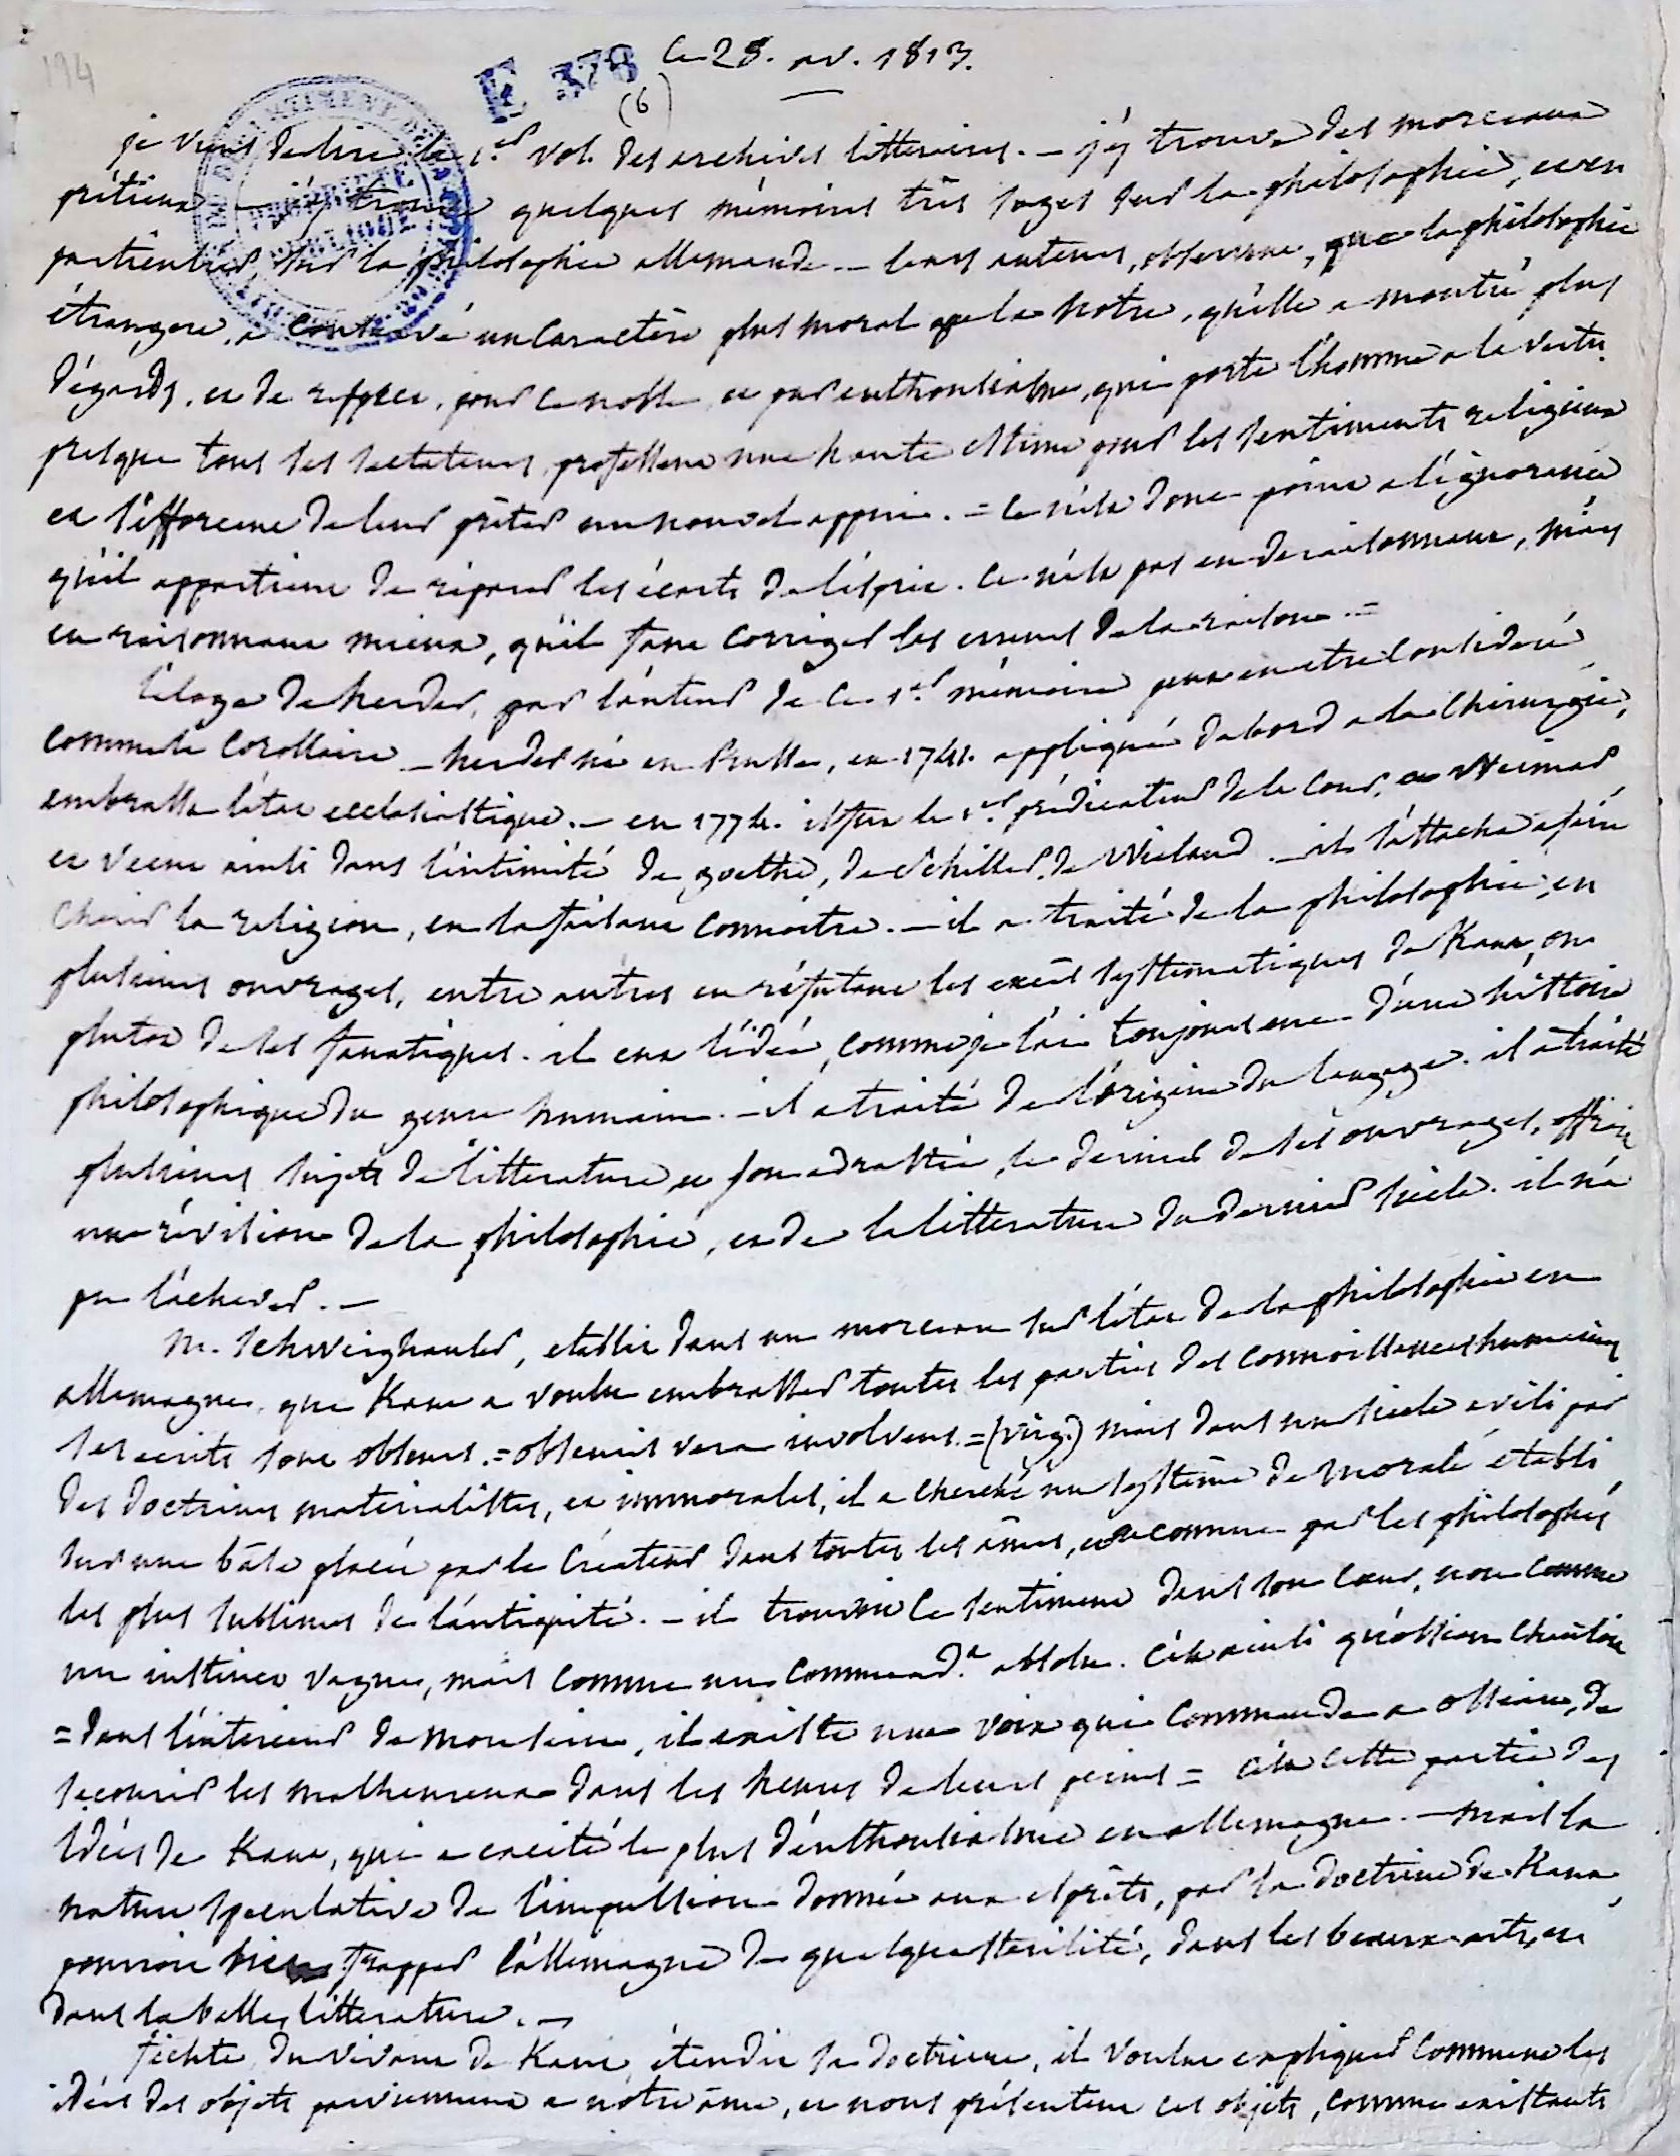 194
E 378
Ce 28. av. 1813.
(6)
je viens de lire le 1.er vol. des archives litteraires. — j'y trouve des morceaux
prétieux — j'y trouve quelques mémoires très sages sur la philosophie, et en
particulier, sur la philosophie allemande. — leurs auteurs, observent, que la philosophie
étrangere, a conservé un caractère plus moral que la notre, qu'elle a montré plus
d'égards, et de respect, pour ce noble et pur enthousiasme, qui porte l'homme a la vertu.
presque tous ses sectateurs professent une haute estime pour les sentiments religieux
et s'efforcent de leur prêter un nouvel appui. = ce n'est donc point a l'ignorance
qu'il appartient de réparer les écarts de l'esprit. ce n'est pas en deraisonnant, mais
en raisonnant mieux, qu'il faut corriger les erreurs de la raison. =
l'éloge de herder, par l'auteur de ce 1.er mémoire peut en etre considéré
comme le corollaire — herder né en Prusse, en 1741. appliqué d'abord a la chirurgie,
embrassa l'état ecclesiastique. — en 1774. il fut le 1.er prédicateur de la cour, a Weimar
et vécut ainsi dans l'intimité de goethe, de schiller, de Wieland. — il s'attacha a faire
chérir la religion, en la faisant connoitre. — il a traité de la philosophie, en
plusieurs ouvrages, entre autres en réfutant les excès systematiques de Kant, ou
plutot de ses fanatiques. il eut l'idée, comme je l'ai toujours eue d'une histoire
philosophique du genre humain. — il a traité de l'origine du langage. il a traité
plusieurs sujets de litterature, et son adrastée, le dernier de ses ouvrages, offroit
une révision de la philosophie, et de la litterature du dernier siècle. il n'a
pu l'achever. —
M. Schweighauser, etablit dans un morceau sur l'état de la philosophie en
allemagne, que Kant a voulu embrasser toutes les parties des connoissances humaines
ses ecrits sont obscurs. = obscuris vera involvens. = (virg.) mais dans un siecle avili par
des doctrines materialistes, et immorales, il a cherché un système de morale établi
sur une base placée par le Créateur dans toutes les âmes, et reconnue par les philosophes
les plus sublimes de l'antiquité. — il trouvoit ce sentiment dans son cœur, non comme
un instinct vague, mais comme un command.t absolu. c'est ainsi qu'ossian chantoit
= dans l'interieur de mon sein, il existe une voix qui commande a ossian, de
secourir les malheureux dans les heures de leurs peines = c'est cette partie des
idées de Kant, qui a excité le plus d'enthousiasme en allemagne. — mais la
nature speculative de l'impulsion donnée aux esprits, par la doctrine de Kant
pourroit bien frapper l'allemagne de quelque sterilité, dans les beaux-arts, et
dans la belle litterature. —
fichte, du vivant de Kant, étendit sa doctrine, il voulut expliquer comment les
idées des objets parviennent a notre âme, et nous présentent ces objets, comme existants